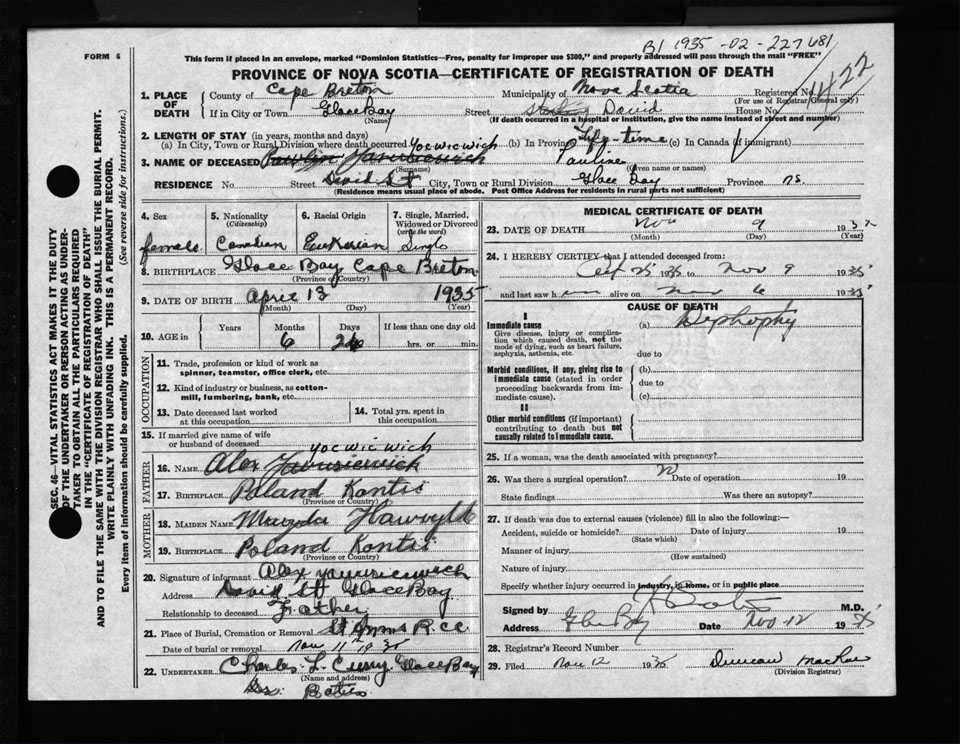 B1 1935 - 02 - 227681
FORM 6
This form if placed in an envelope, marked "Dominion Statistics—Free, penalty for improper use $300," and properly addressed will pass through the mail "FREE"
PROVINCE OF NOVA SCOTIA—CERTIFICATE OF REGISTRATION OF DEATH
1422
1. PLACE OF DEATH
County of Cape Breton Municipality of Nova Scotia Registered No.
(For use of Registrar General only)
If in City or Town Glace Bay Street David House No.
(Name) (If death occurred in a hospital or institution, give the name instead of street and number)
2. LENGTH OF STAY (in years, months and days)
(a) In City, Town or Rural Division where death occurred (b) In Province Life-time (c) In Canada (if immigrant)
3. NAME OF DECEASED Yocwicwich Pauline
(Surname) (Given name or names)
RESIDENCE No. Street David St City, Town or Rural Division Glace Bay Province N.S.
(Residence means usual place of abode. Post Office Address for residents in rural parts not sufficient)
4. Sex female
5. Nationality (Citizenship) Canadian
6. Racial Origin
7. Single, Married, Widowed or Divorced (write the word) Single
8. BIRTHPLACE Glace Bay Cape Breton
(Province or Country)
9. DATE OF BIRTH April 13 1935
(Month) (Day) (Year)
10. AGE in
Years Months Days If less than one day old
6 26 hrs. or min.
OCCUPATION
11. Trade, profession or kind of work as spinner, teamster, office clerk, etc.
12. Kind of industry or business, as cotton-mill, lumbering, bank, etc.
13. Date deceased last worked at this occupation
14. Total yrs. spent in this occupation
15. If married give name of wife or husband of deceased
FATHER
16. NAME Alex Yocwicwich
17. BIRTHPLACE Poland
(Province or Country)
MOTHER
18. MAIDEN NAME
19. BIRTHPLACE Poland
(Province or Country)
20. Signature of informant Alex
Address David St Glace Bay
Relationship to deceased Father
21. Place of Burial, Cremation or Removal St Anns R.C.C.
Date of burial or removal Nov 11 19 35
22. UNDERTAKER Charles L. Curry Glace Bay
(Name and address)
MEDICAL CERTIFICATE OF DEATH
23. DATE OF DEATH Nov 9 193
(Month) (Day) (Year)
24. I HEREBY CERTIFY that I attended deceased from:
Oct 25 1935 to Nov 9 1935
and last saw h alive on Nov 6 1935
CAUSE OF DEATH
I
Immediate cause
Give disease, injury or complication which caused death, not the mode of dying, such as heart failure, asphyxia, asthenia, etc.
(a)
due to
Morbid conditions, if any, giving rise to immediate cause (stated in order proceeding backwards from immediate cause).
(b)
due to
(c)
II
Other morbid conditions (if important) contributing to death but not causally related to immediate cause.
25. If a woman, was the death associated with pregnancy?
26. Was there a surgical operation? Date of operation 19
State findings Was there an autopsy?
27. If death was due to external causes (violence) fill in also the following:—
Accident, suicide or homicide? Date of injury 19
(State which)
Manner of injury
(How sustained)
Nature of injury
Specify whether injury occurred in industry, in home, or in public place
Signed by M.D.
Address Glace Bay Date Nov 12 1935
28. Registrar's Record Number
29. Filed Nov 12 1935 Duncan MacRae
(Division Registrar)
SEC. 46—VITAL STATISTICS ACT MAKES IT THE DUTY
OF THE UNDERTAKER OR PERSON ACTING AS UNDER-
TAKER TO OBTAIN ALL THE PARTICULARS REQUIRED
IN THE "CERTIFICATE OF REGISTRATION OF DEATH"
AND TO FILE THE SAME WITH THE DIVISION REGISTRAR WHO SHALL ISSUE THE BURIAL PERMIT.
WRITE PLAINLY WITH UNFADING INK. THIS IS A PERMANENT RECORD.
Every item of information should be carefully supplied. (See reverse side for instructions.)